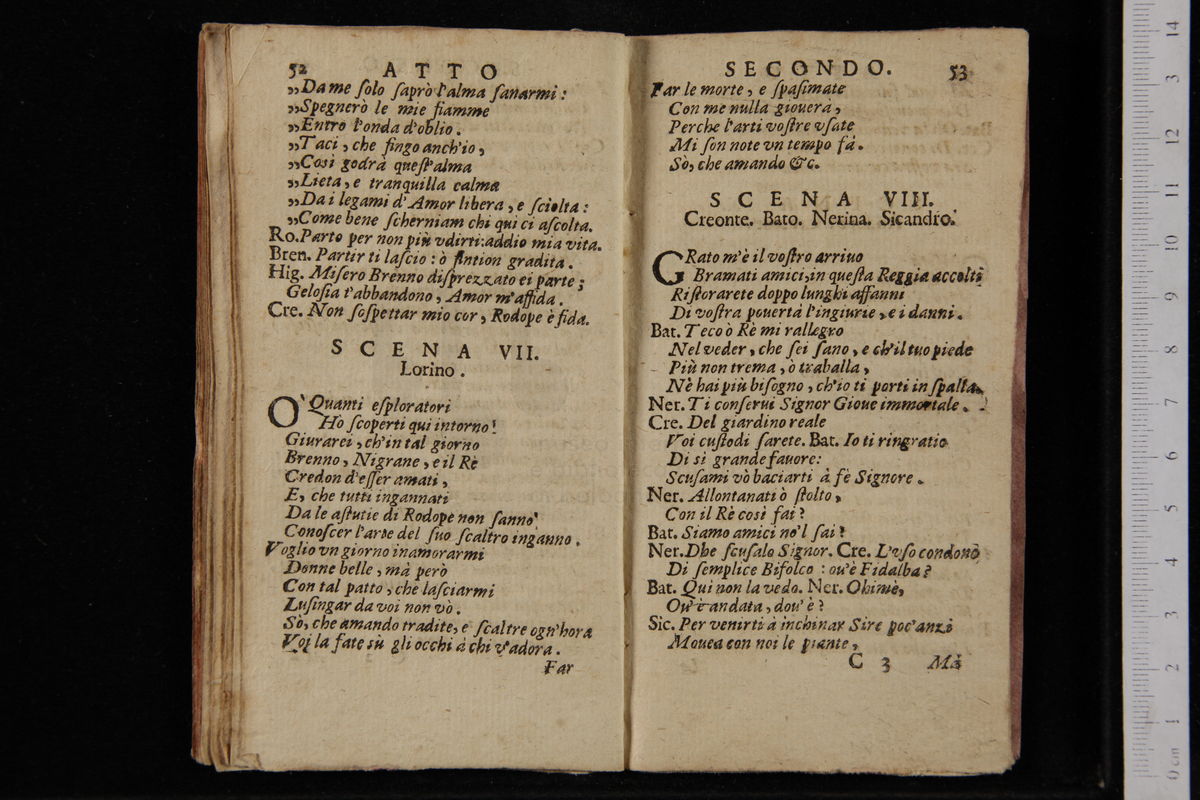 52 ATTO
„Da me ſolo ſaprò l'alma ſanarmi:
„Spegnerò le mie fiamme
„Entro l'onda d'oblio.
„Taci, che fingo anch'io,
„Così godrà queſt'alma
„Lieta, e tranquilla calma
„Da i legami d'Amor libera, e ſciolta:
„Come bene ſcherniam chi qui ci aſcolta.
Ro. Parto per non più vdirti: addio mia vita.
Bren. Partir ti laſcio: ò fintion gradita.
Hig. Miſero Brenno diſprezzato ei parte;
Geloſia t'abbandono, Amor m'affida.
Cre. Non ſoſpettar mio cor, Rodope è fida.
SCENA VII.
Lorino.
O' Quanti eſploratori
Hò ſcoperti qui intorno!
Giurarei, ch'in tal giorno
Brenno, Nigrane, e il Rè
Credon d'eſſer amati,
E, che tutti ingannati
Da le aſtutie di Rodope non ſanno
Conoſcer l'arte del ſuo ſcaltro inganno.
Voglio vn giorno inamorarmi
Donne belle, mà però
Con tal patto, che laſciarmi
Luſingar da voi non vò.
Sò, che amando tradite, e ſcaltre ogn'hora
Voi la fate sù gli occhi à chi v'adora.
Far
SECONDO. 53
Far le morte, e ſpaſimate
Con me nulla giouerà,
Perche l'arti voſtre vſate
Mi ſon note vn tempo fà.
Sò, che amando &c.
SCENA VIII.
Creonte. Bato. Nerina. Sicandro.
GRato m'è il voſtro arriuo
Bramati amici, in queſta Reggia accolti
Riſtorarete doppo lunghi affanni
Di voſtra pouertà l'ingiurie, e i danni.
Bat. Teco ò Rè mi rallegro
Nel veder, che ſei ſano, e ch'il tuo piede
Più non trema, ò traballa,
Nè hai più biſogno, ch'io ti porti in ſpalla.
Ner. Ti conſerui Signor Gioue immortale.
Cre. Del giardino reale
Voi cuſtodi ſarete. Bat. Io ti ringratio
Di sì grande fauore:
Scuſami vò baciarti à fè Signore.
Ner. Allontanati ò ſtolto,
Con il Rè così fai?
Bat. Siamo amici no'l ſai?
Ner. Dhe ſcuſalo Signor. Cre. L'vſo condono
Di ſemplice Bifolco: ou'è Fidalba?
Bat. Qui non la vedo. Ner. Ohime,
Ou'è andata, dou'è?
Sic. Per venirti à inchinar Sire poc'anzi
Mouea con noi le piante,
C 3 Mà
14
3
12
11
10
9
8
7
6
5
4
3
2
1
0 cm